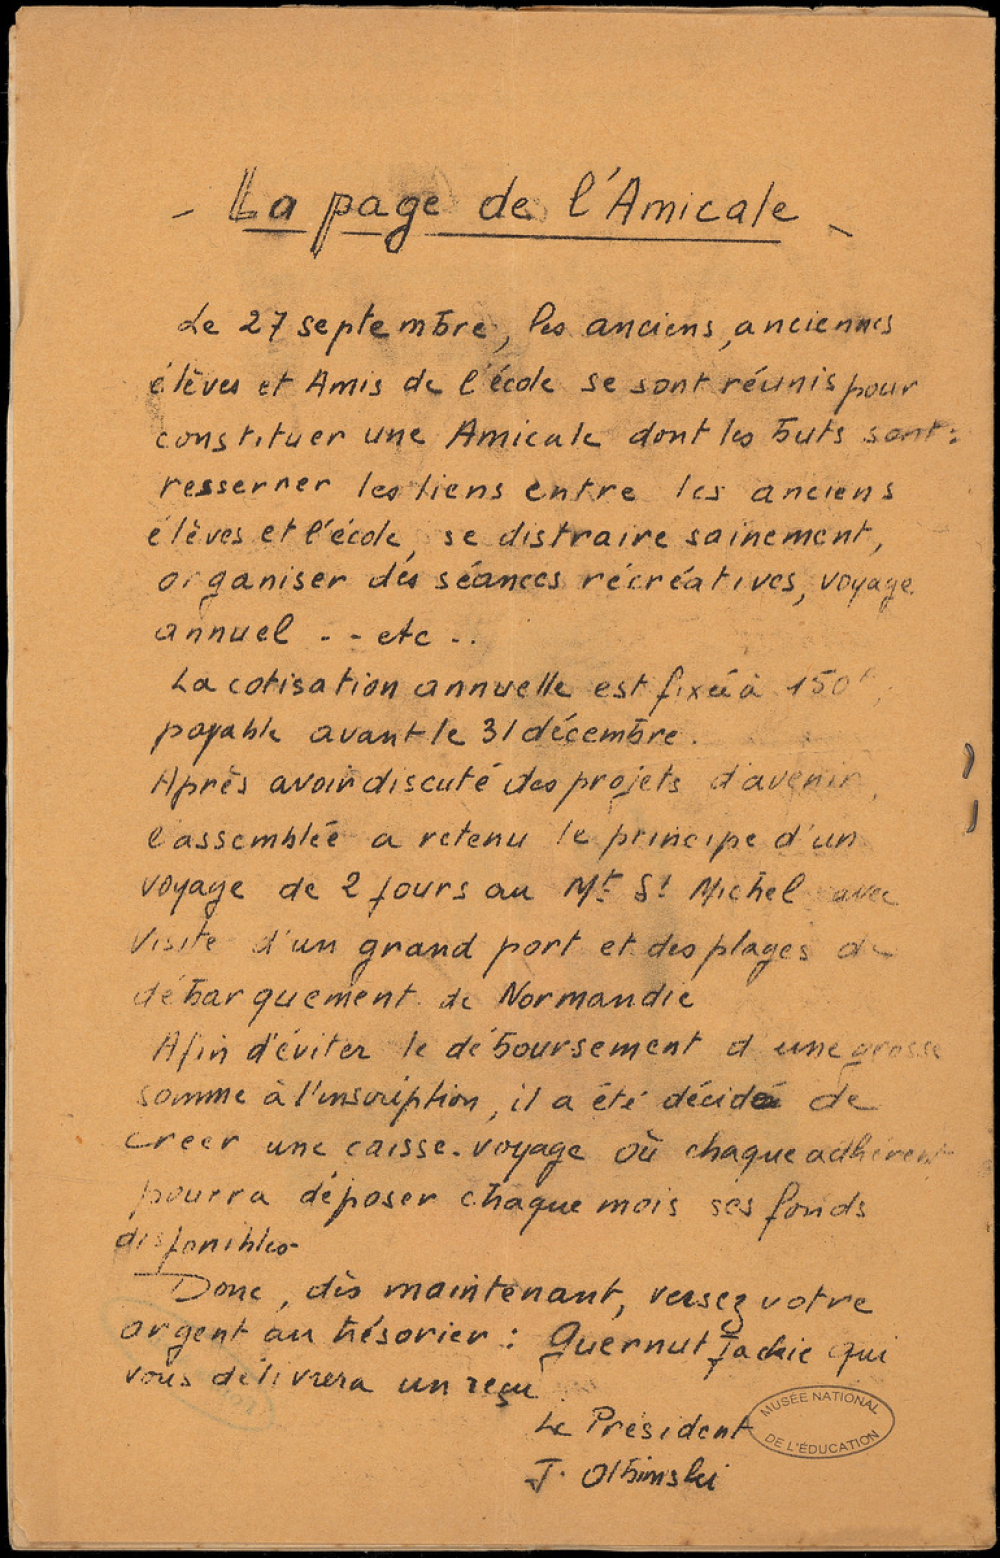 - La page de l'Amicale -
Le 27 septembre, les anciens, anciennes
élèves et Amis de l'école se sont réunis pour
constituer une Amicale dont les buts sont :
resserrer les liens entre les anciens
élèves et l'école, se distraire sainement,
organiser des séances récréatives, voyage
annuel - - etc - .
La cotisation annuelle est fixée à 150f,
payable avant le 31 décembre.
Après avoir discuté des projets d'avenir,
l'assemblée a retenu le principe d'un
voyage de 2 jours au Mt St Michel avec
visite d'un grand port et des plages de
débarquement de Normandie
Afin d'éviter le déboursement d'une grosse
somme à l'inscription, il a été décidé de
creer une caisse-voyage où chaque adhérent
pourra déposer chaque mois ses fonds
disponibles
Donc, dès maintenant, versez votre
argent au trésorier : Quernut Jackie qui
vous délivrera un reçu
Le Président
J. Olbinski
MUSÉE NATIONAL
DE L'ÉDUCATION